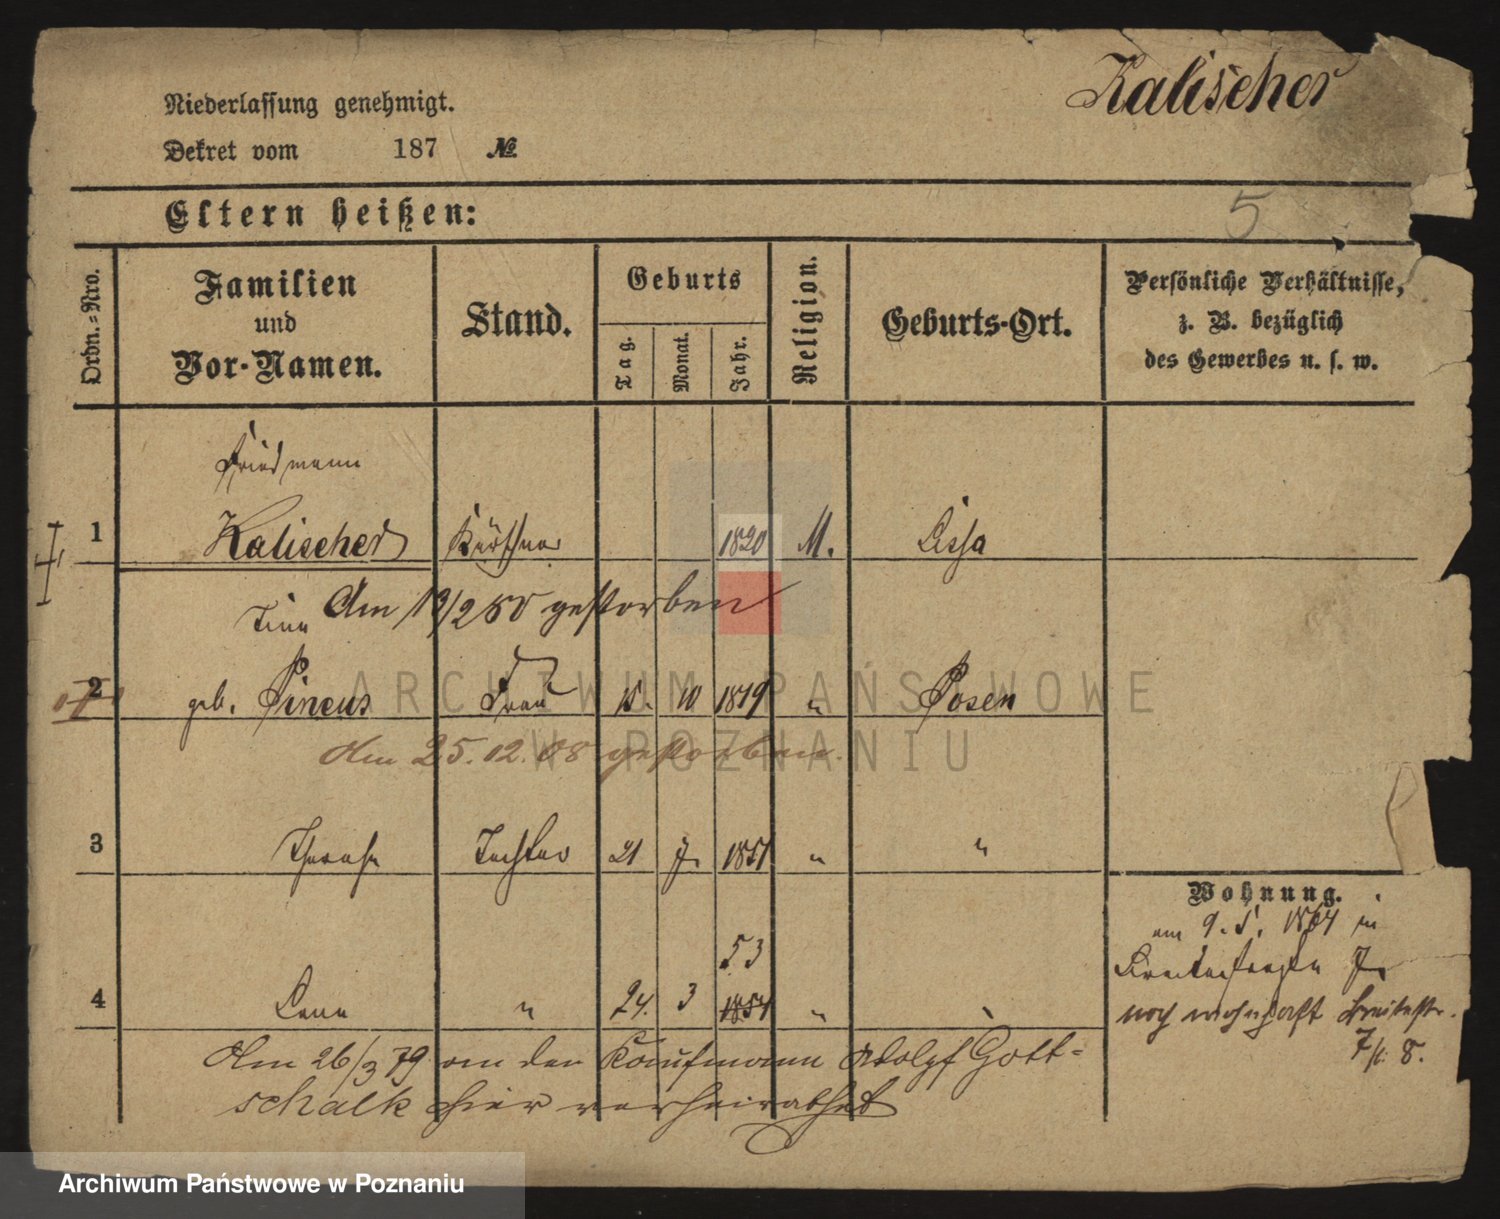 Kalischer
Niederlassung genehmigt.
Dekret vom 187 №
5
Eltern heißen:
Ordn.-Nro.
Familien
und
Vor-Namen.
Stand.
Geburts
Tag.
Monat.
Jahr.
Religion.
Geburts-Ort.
Persönliche Verhältnisse,
z. B. bezüglich
des Gewerbes u. s. w.
Friedmann
1 Kalischer Kürschner 1820 M. Lissa
Am 19/2 80 gestorben
2 geb. Pincus Frau 15. 10 1819 " Posen
Am 25.12.08 gestorben.
3 Therese Tochter 21 7. 1851 " "
Wohnung.
am 9. 5. 1864 in
53
Breitestraße 7.
4 Lena " 24. 3 1854 " "
noch wohnhaft Breitestr.
7/ 8.
Am 26/3 79 an den Kaufmann Adolf Gott-
schalk hier verheirathet
ARCHIWUM PAŃSTWOWE
W POZNANIU
Archiwum Państwowe w Poznaniu